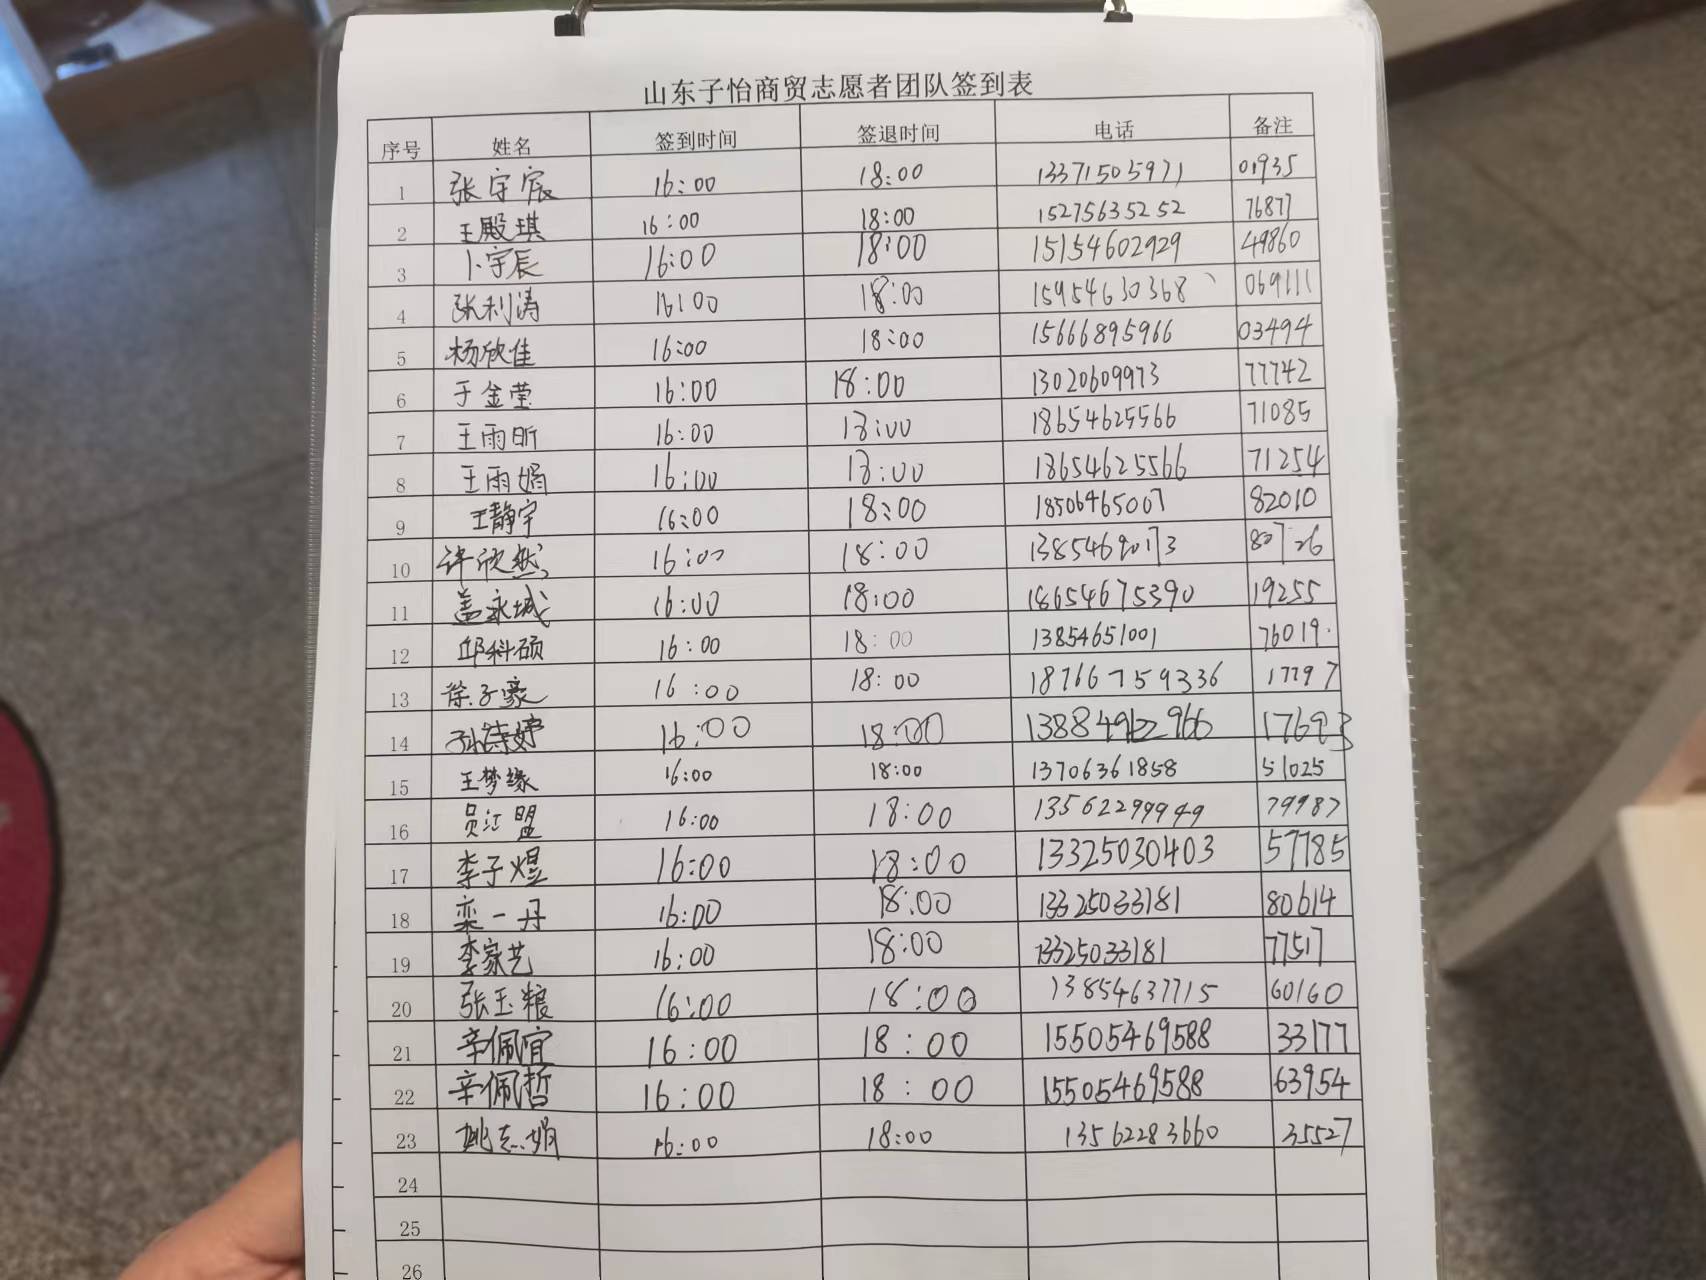 山东子怡商贸志愿者团队签到表
序号 姓名 签到时间 签退时间 电话 备注
1 张宇宸 16:00 18:00 13371505971 01935
2 王殿琪 16:00 18:00 15275635252 76877
3 卜宇辰 16:00 18:00 15154602929 49860
4 张利涛 16:00 18:00 15954630368 069111
5 杨欣佳 16:00 18:00 15666895966 03494
6 于金莹 16:00 18:00 13020609973 77742
7 王雨昕 16:00 18:00 18654625566 71085
8 王雨娟 16:00 18:00 18654625566 71254
9 王静宇 16:00 18:00 18506465007 82010
10 许欣然 16:00 18:00 13854690173 80726
11 盖永城 16:00 18:00 18654675390 19255
12 邱科硕 16:00 18:00 13854651001 76019
13 徐子豪 16:00 18:00 18766759336 17797
14 孙诗婷 16:00 18:00 17693
15 王梦缘 16:00 18:00 13706361858 51025
16 员江盟 16:00 18:00 13562299949 79987
17 李子煜 16:00 18:00 13325030403 57785
18 栾一丹 16:00 18:00 13325033181 80614
19 李家艺 16:00 18:00 13325033181 77517
20 张玉粮 16:00 18:00 13854637715 60160
21 辛佩宜 16:00 18:00 15505469588 33177
22 辛佩哲 16:00 18:00 15505469588 63954
23 姚志娟 16:00 18:00 13562283660 35527
24
25
26